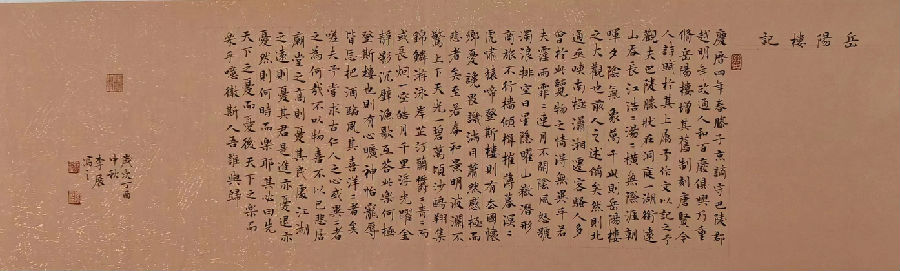 岳陽樓記
慶曆四年春滕子京謫守巴陵郡
越明年政通人和百廢俱興乃重
修岳陽樓增其舊制刻唐賢今
人詩賦於其上屬予作文以記之予
觀夫巴陵勝狀在洞庭一湖銜遠
山吞長江浩〻湯〻橫無際涯朝
暉夕陰氣象萬千此則岳陽樓
之大觀也前人之述備矣然則北
通巫峽南極瀟湘遷客騷人多
會於此覽物之情得無異乎若
夫霪雨霏〻連月不開陰風怒號
濁浪排空日星隱曜山嶽潛形
商旅不行檣傾楫摧薄暮冥〻
虎嘯猿啼登斯樓則有去國懷
鄉憂讒畏譏滿目蕭然感極而
悲者矣至若春和景明波瀾不
驚上下天光一碧萬頃沙鷗翔集
錦鱗游泳岸芷汀蘭鬱〻青〻而
或長煙一空皓月千里浮光曜金
靜影沉璧漁歌互答此樂何極
登斯樓也則有心曠神怡寵辱
皆忘把酒臨風其喜洋〻者矣
嗟夫予嘗求古仁人之心或異二者
之為何哉不以物喜不以己悲居
廟堂之高則憂其民處江湖
之遠則憂其君是進亦憂退亦
憂然則何時而樂耶其必曰先
天下之憂而憂後天下之樂而
樂乎噫微斯人吾誰與歸
歲次丁酉
中秋
李展